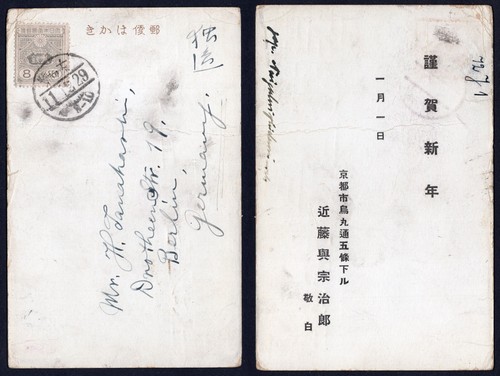 郵便はかき
8
11
29
獨逸
Mr. H. Tanahashi,
Drotheen Str. 19,
Berlin,
Germany,
謹賀新年
一月一日
京都市烏丸通五條下ル
近藤與宗治郎
敬白